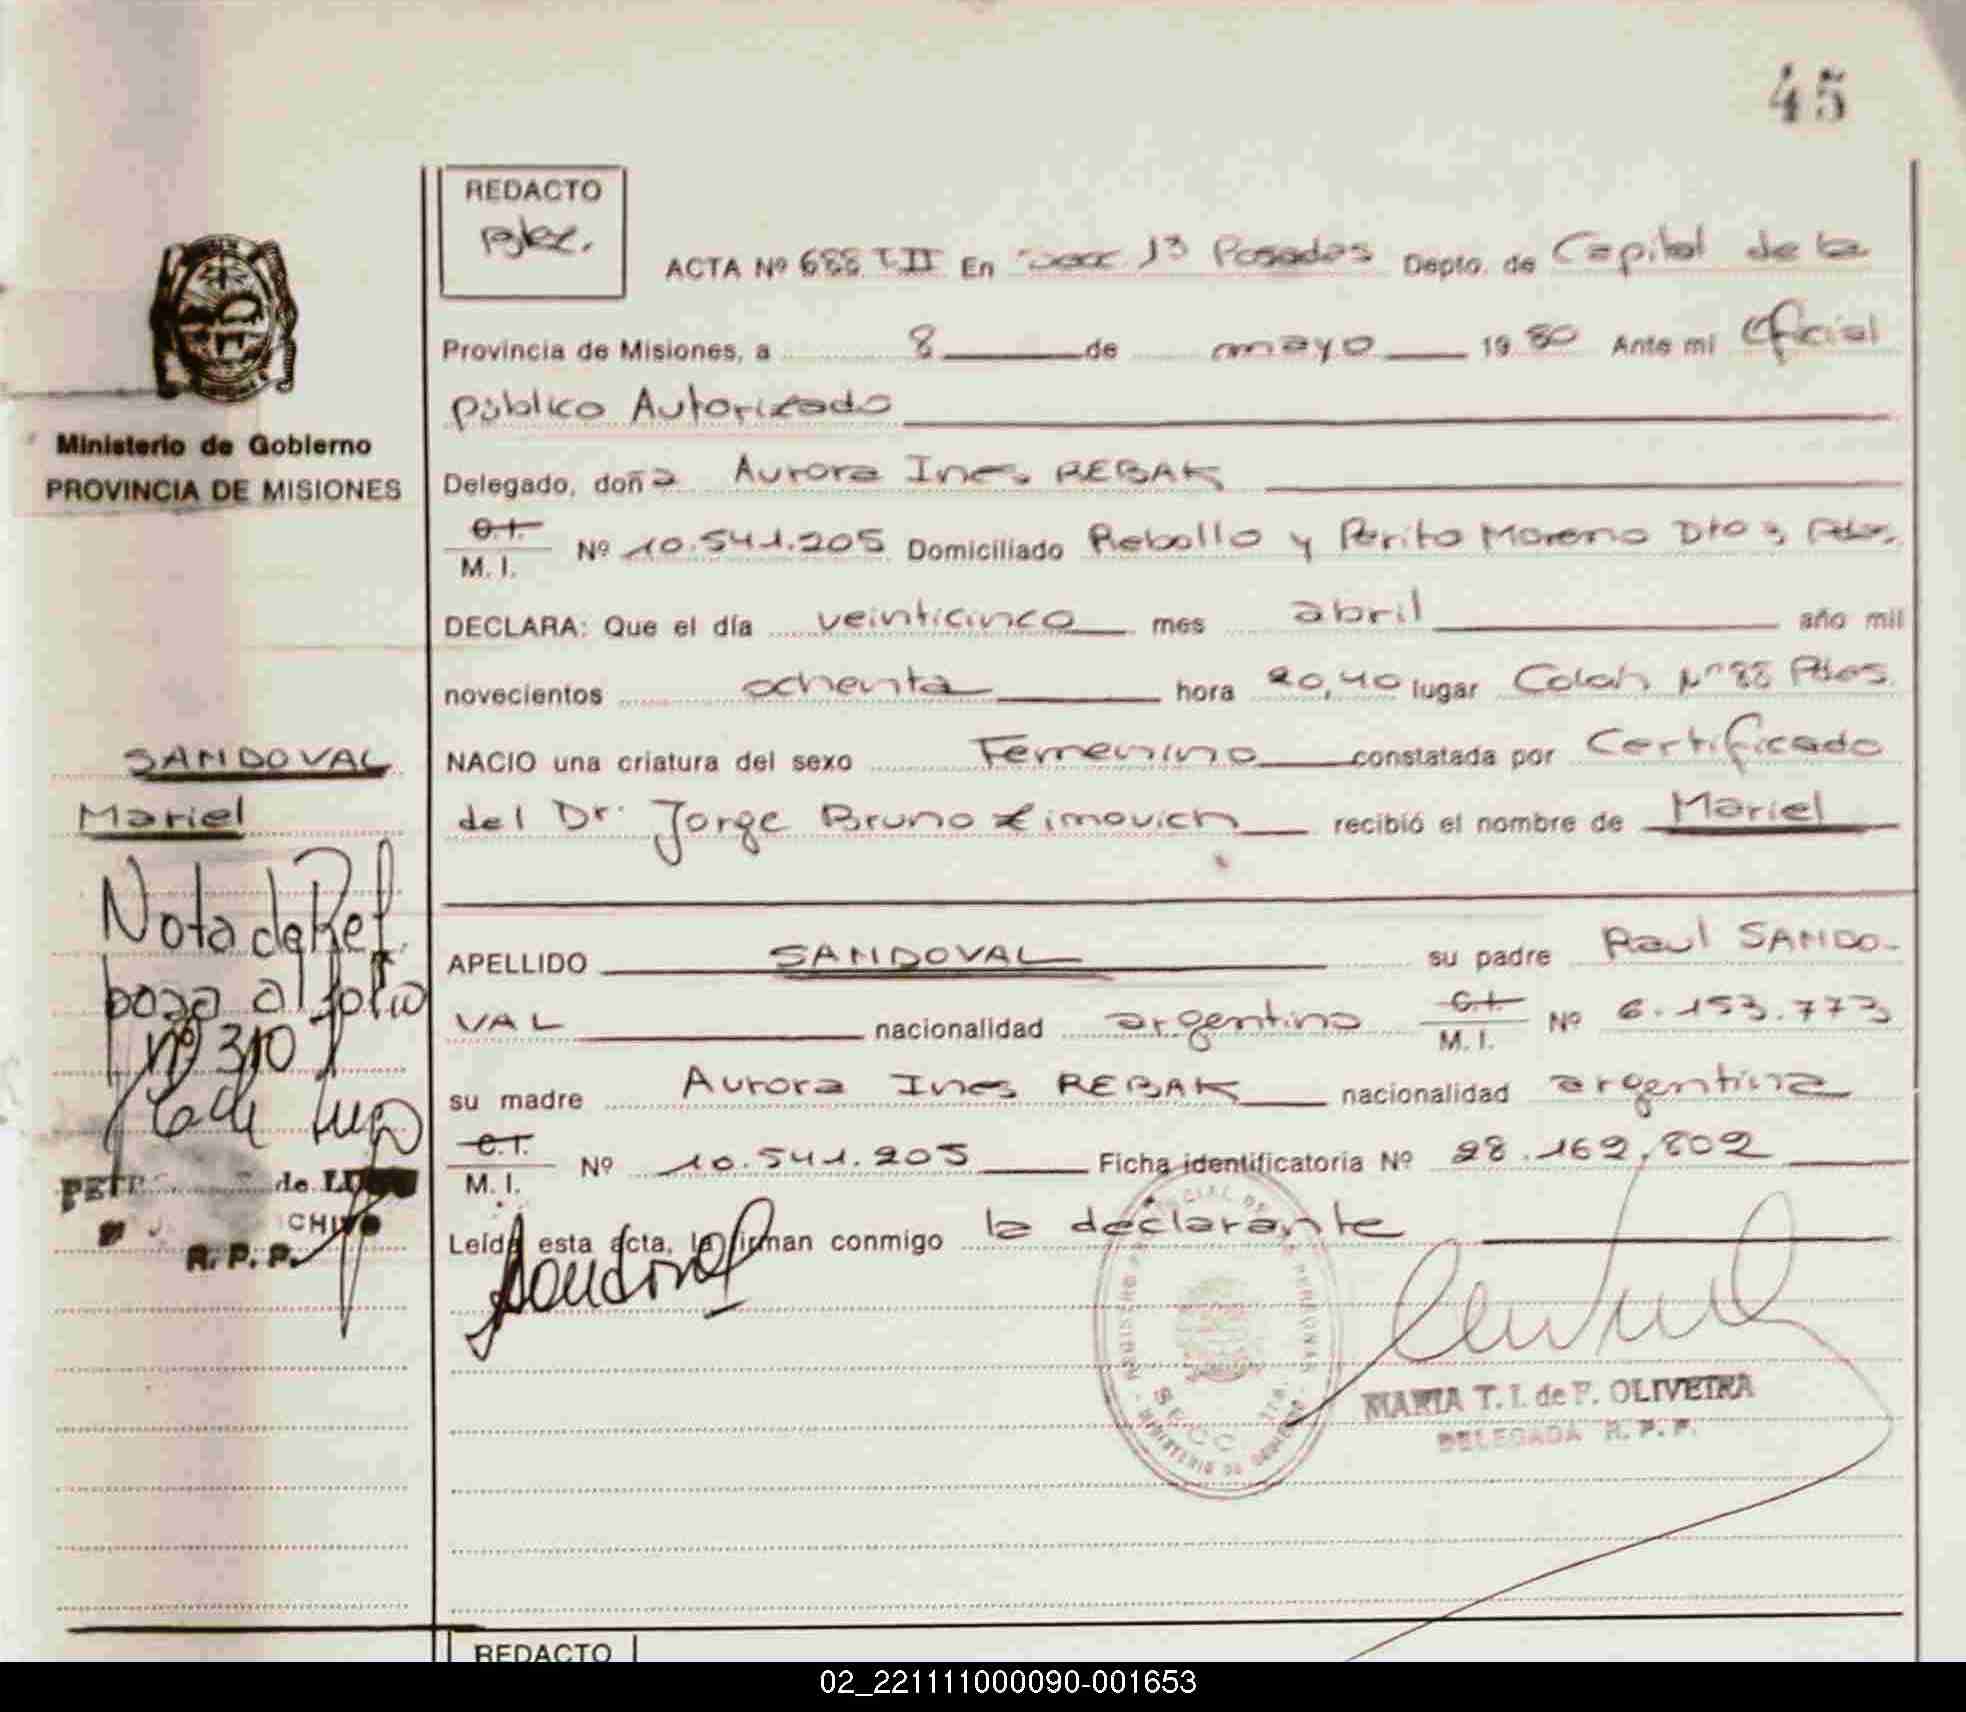 45
REDACTO
ACTA Nº 688 T.II En Secc 13 Posadas Depto. de Capital de la
Provincia de Misiones, a 8 de mayo 19 80 Ante mi Oficial
público Autorizado
Ministerio de Gobierno
PROVINCIA DE MISIONES
Delegado, doña Aurora Ines REBAK
C.I.
M. I. Nº 10.541.205 Domiciliado Rebollo y Perito Moreno Dto 3, Pdas.
DECLARA: Que el día veinticinco mes abril año mil
novecientos ochenta hora 20,40 lugar Colón Nº 88 Pdas.
NACIO una criatura del sexo Femenino constatada por Certificado
del Dr. Jorge Bruno Limovich recibió el nombre de Mariel
SANDOVAL
Mariel
Nota de Ref.
pasa al folio
nº 310
APELLIDO SANDOVAL su padre Raul SANDO-
VAL nacionalidad argentino C.I.
M. I. Nº 6.153.773
su madre Aurora Ines REBAK nacionalidad argentina
C.I.
M. I. Nº 10.541.205 Ficha identificatoria Nº 28.169.802
Leída esta acta, la firman conmigo la declarante
de
R. P. P.
Sandoval
MARIA T. I. de F. OLIVEIRA
DELEGADA R. P. P.
REDACTO
02_221111000090-001653